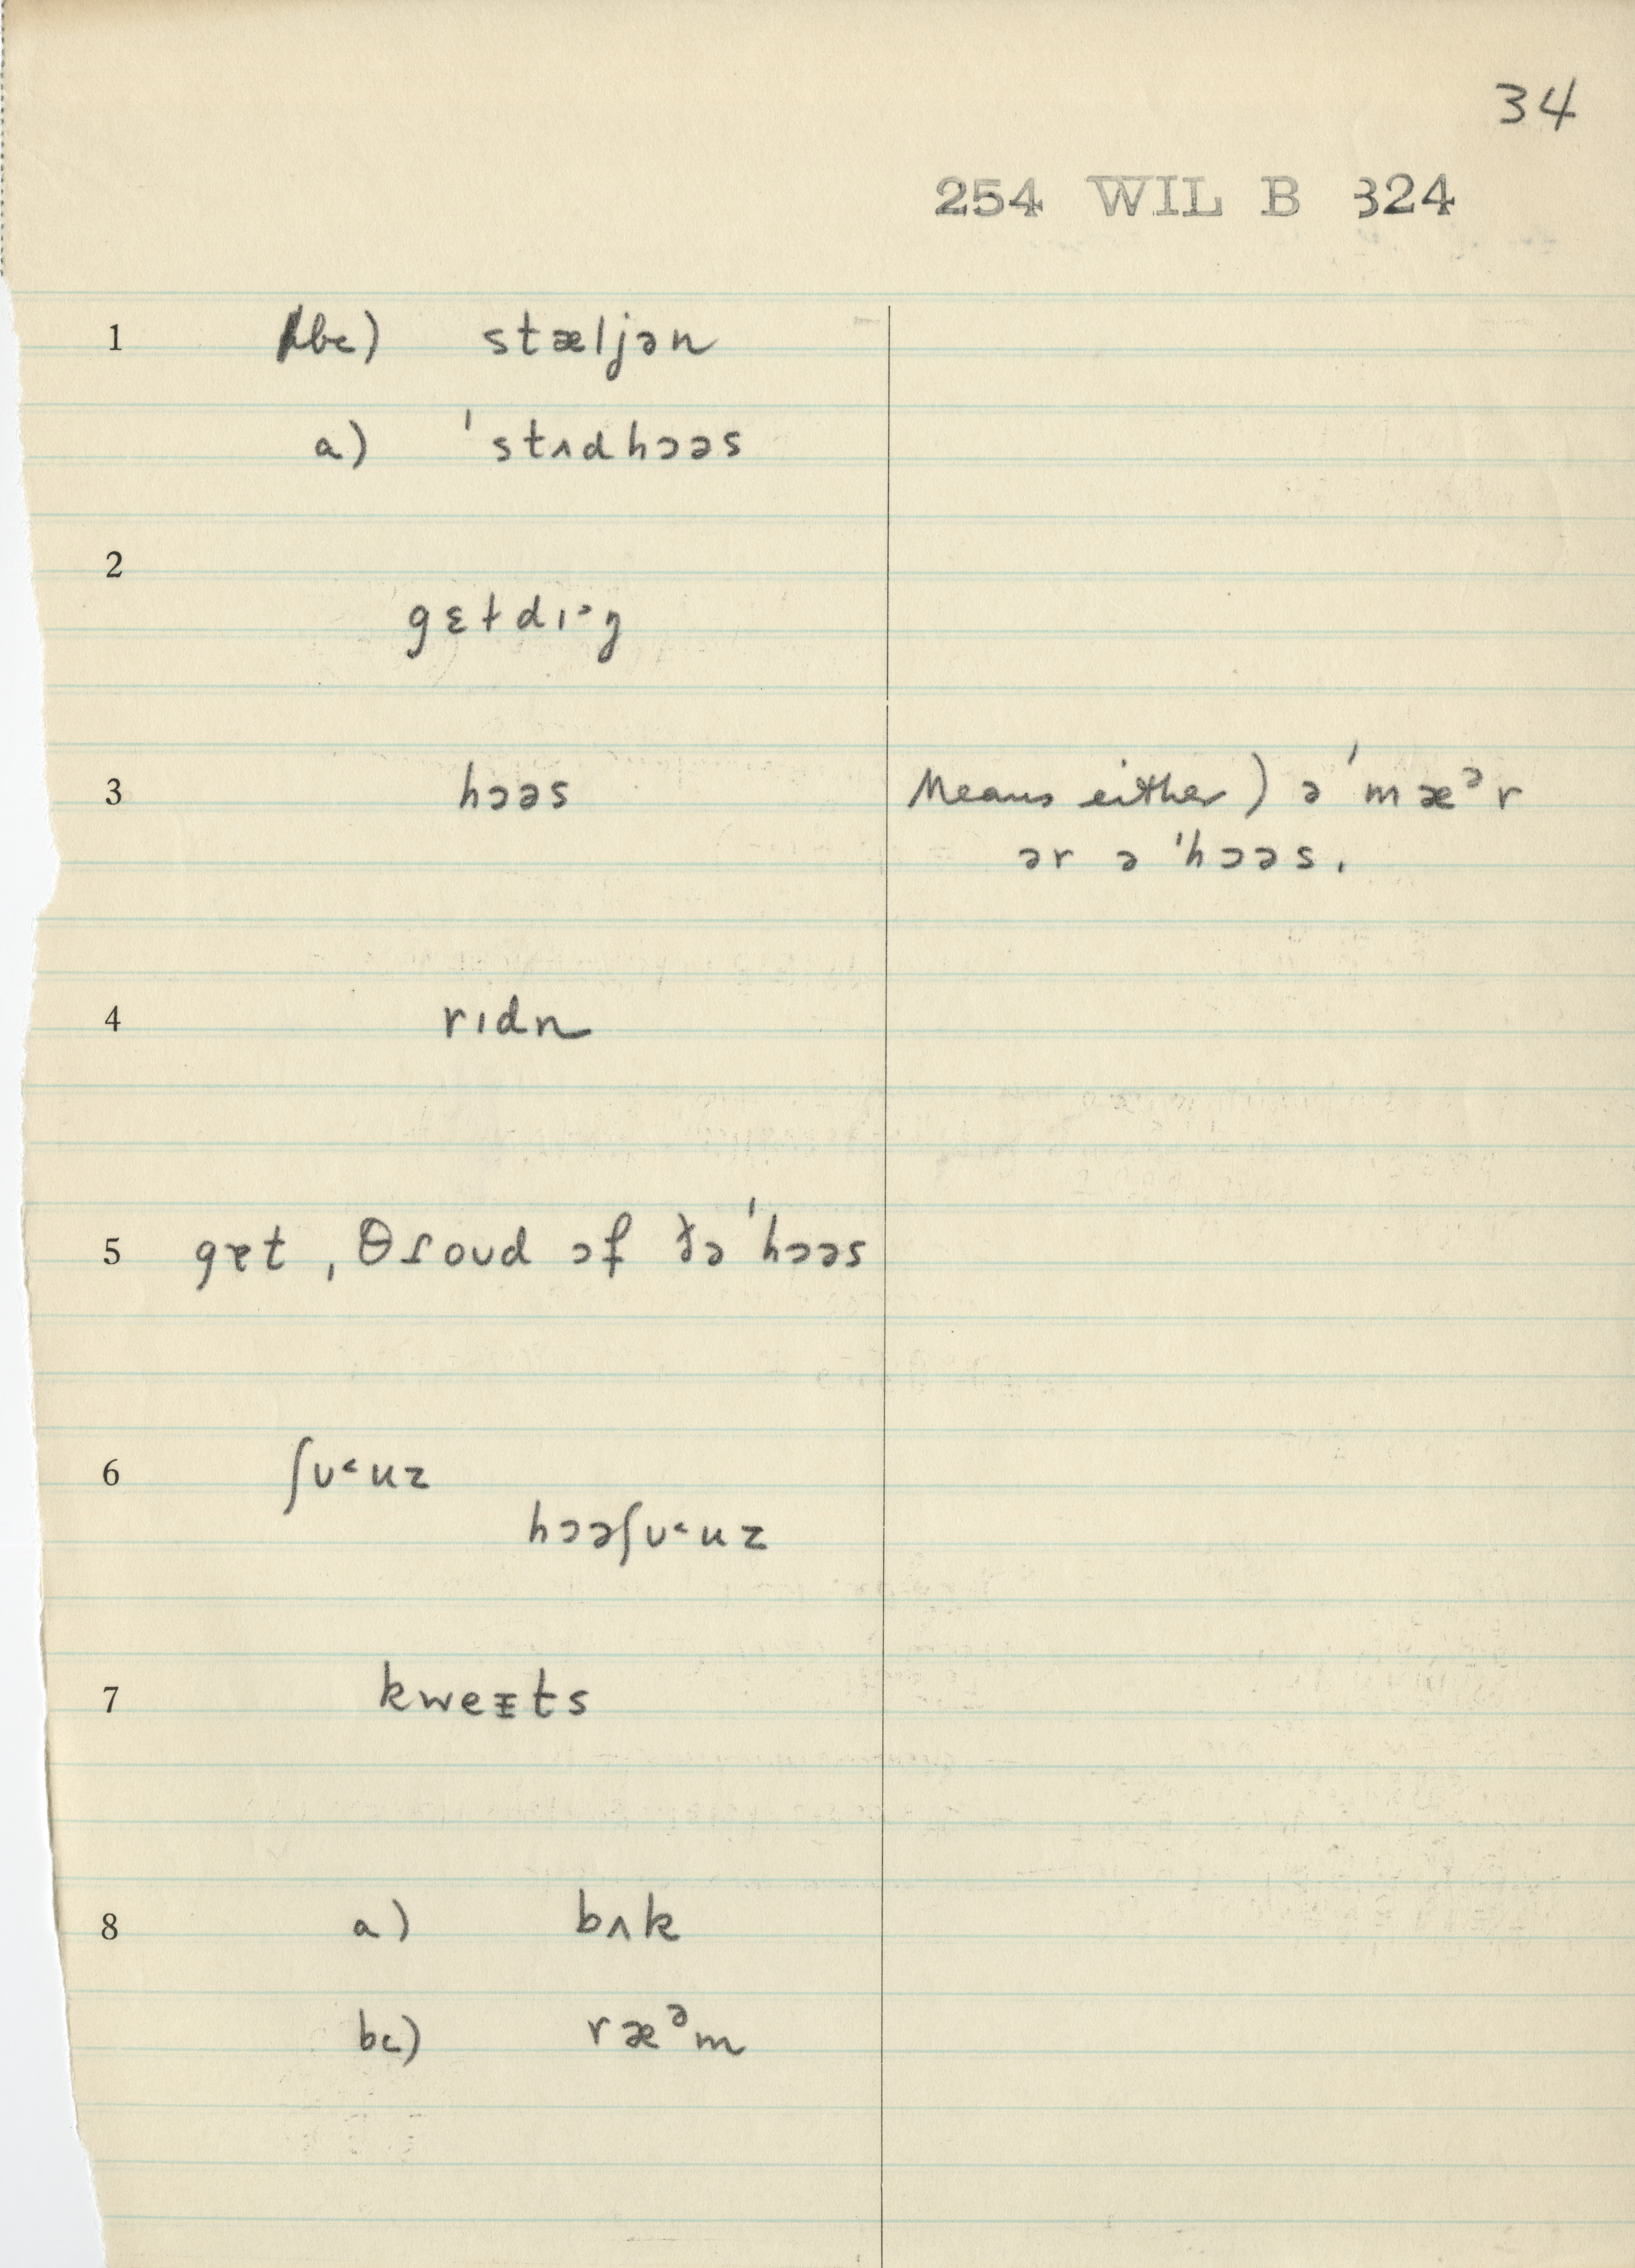 34
254 WIL B 324
1 bc) stæljən
a) ˈstʌdhɔəs
2
gɛtdɪ˃ŋ
3 hɔəs Means either) ə ˈmæᵊr
ər ə ˈhɔəs.
4 rɪdn
5 gɛt ˌθɾoʊd ɔf ðə ˈhɔəs
6 ʃʊ˂uz
hɔəʃʊ˂uz
7 kweɪts
8 a) bʌk
bc) ræᵊm